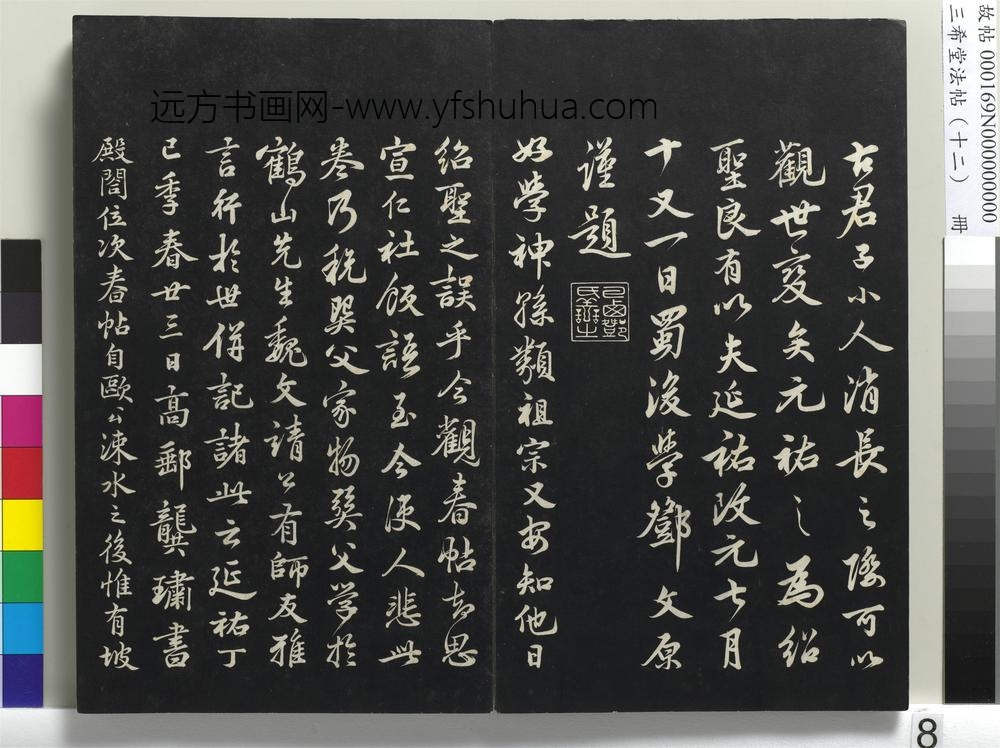 古君子小人消長之際可以
觀世變矣元祐之為紹
聖良有以夫延祐改元七月
十又一日蜀後學鄧文原
謹題
好學神孫類祖宗又安知他日
紹聖之誤乎今觀春帖却思
宣仁社飯語至今使人悲此
卷乃税巽父家物巽父学於
鶴山先生魏文靖公有師友雅
言行於世併記諸此云延祐丁
巳季春廿三日高郵龔璛書
殿閤位次春帖自歐公涑水之後惟有坡
远方书画网-www.yfshuhua.com
故帖 000169N000000000
三希堂法帖（十二） 冊
8